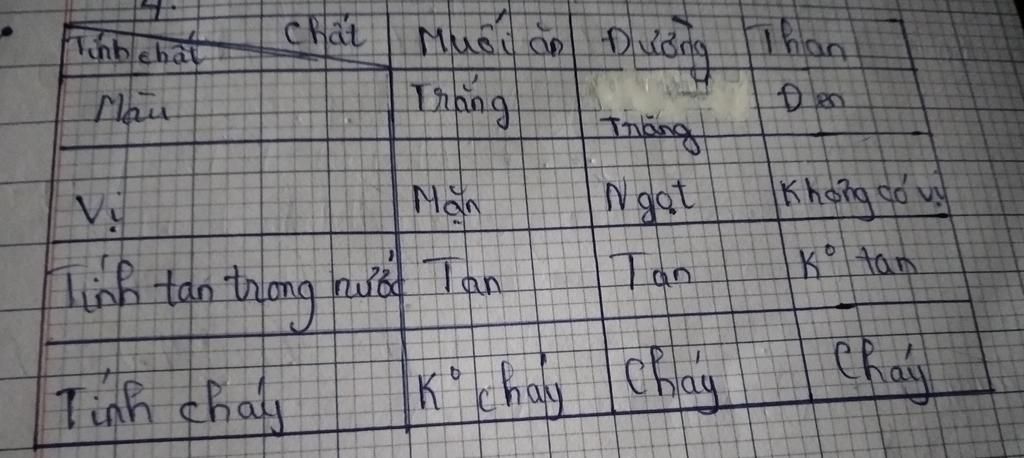 4.
Tính chất Chất Muối ăn Đường Than
Màu Trắng Trắng Đen
Vị Mặn Ngọt Không có vị
Tính tan trong nước Tan Tan K° tan
Tính cháy K° cháy Cháy Cháy